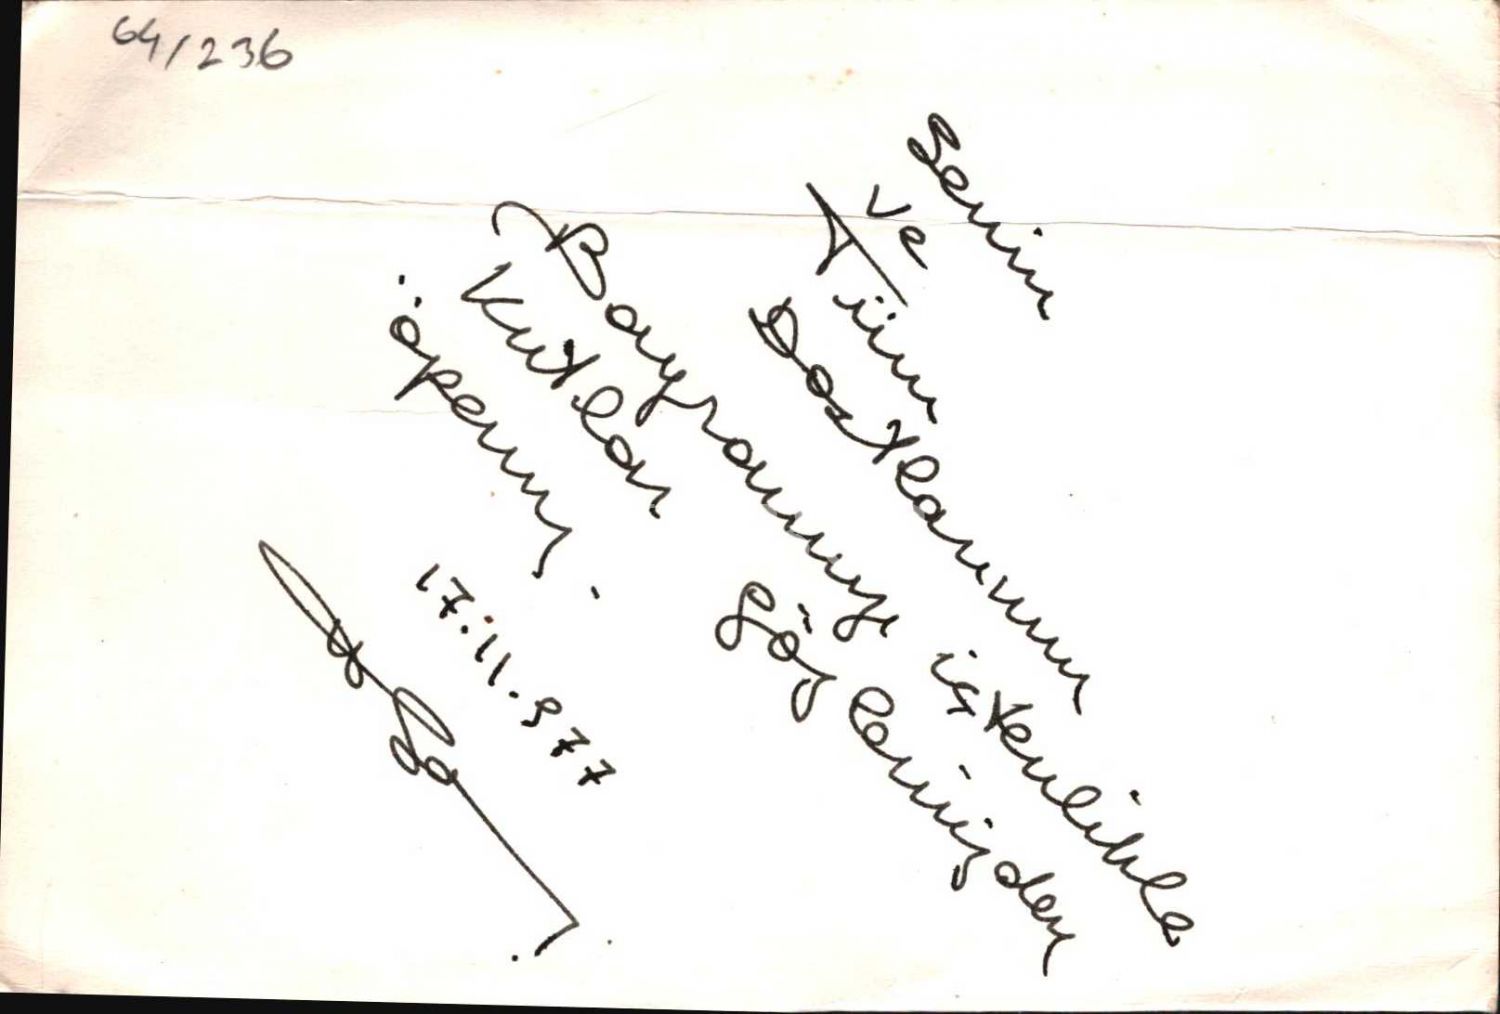 64/236
Senin
ve
Tüm
Dostlarının
Bayramını içtenlikle
Kutlar gözlerinizden
öperim.
17.11.977